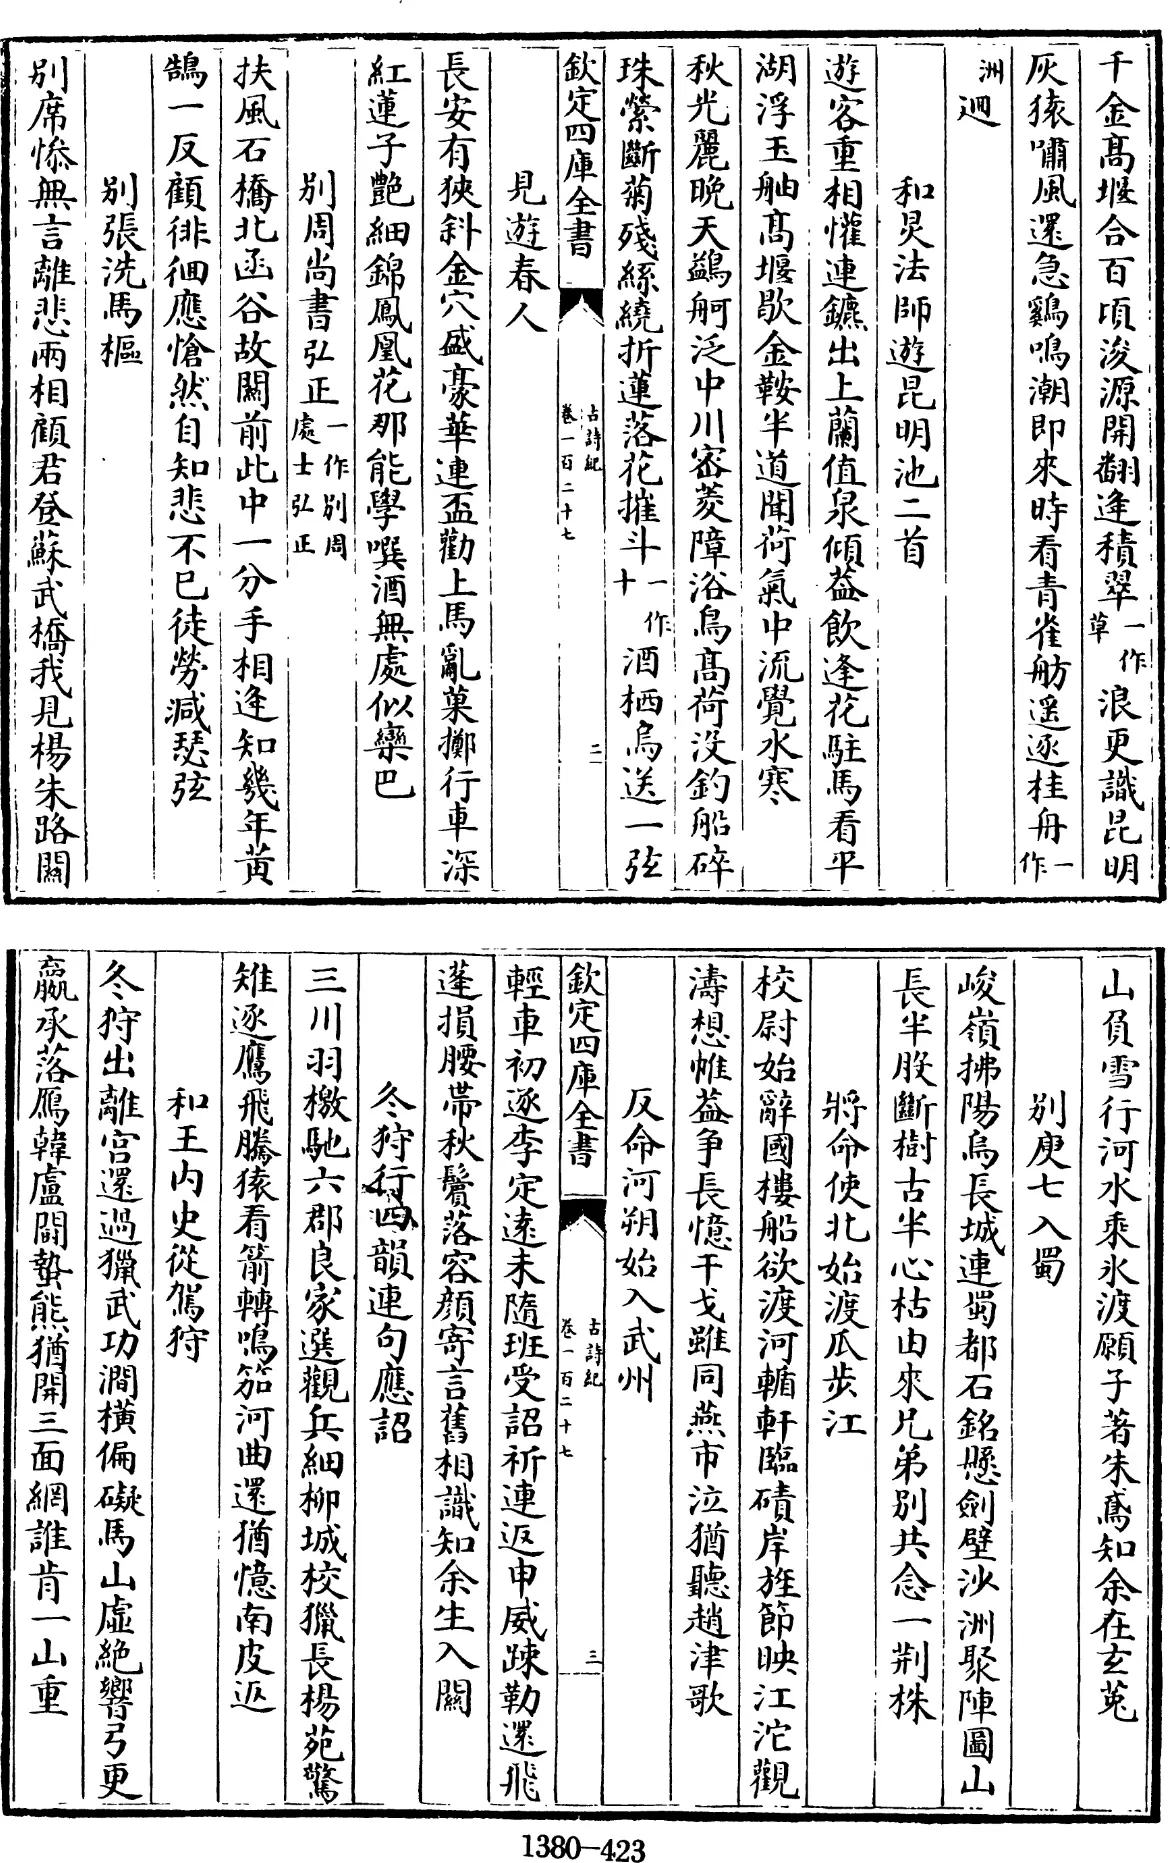 千金髙堰合百頃浚源開翻逢積翠一作草浪更識昆明
灰猿嘯風還急鷄鳴潮即來時看青雀舫遥逐桂舟一作
洲迴
和炅法師遊昆明池二首
遊客重相懽連鑣出上蘭值泉傾葢飲逢花駐馬看平
湖浮玉舳髙堰歇金鞍半道聞荷氣中流覺水寒
秋光麗晚天鷁舸泛中川密菱障浴鳥髙荷没釣船碎
珠縈斷菊殘絲繞折蓮落花摧斗一作十酒栖烏送一弦
欽定四庫全書
古詩紀
卷一百二十七
二
見遊春人
長安有狹斜金穴盛豪華連盃勸上馬亂菓擲行車深
紅蓮子艷細錦鳳凰花那能學噀酒無處似欒巴
別周尚書弘正一作別周處士弘正
扶風石橋北函谷故關前此中一分手相逢知幾年黄
鵠一反顧徘徊應愴然自知悲不已徒勞減瑟弦
別張洗馬樞
別席慘無言離悲兩相顧君登蘇武橋我見楊朱路關
山負雪行河水乘氷渡願子著朱鳶知余在玄菟
別庾七入蜀
峻嶺拂陽烏長城連蜀都石銘懸劍壁沙洲聚陣圖山
長半股斷樹古半心枯由來兄弟別共念一荆株
將命使北始渡瓜步江
校尉始辭國樓船欲渡河輴軒臨磧岸旌節映江沱觀
濤想帷葢争長憶干戈雖同燕市泣猶聽趙津歌
反命河朔始入武州
欽定四庫全書
古詩紀
卷一百二十七
三
輕車初逐李定遠未隨班受詔祈連返申威踈勒還飛
蓬損腰帶秋鬢落容顔寄言舊相識知余生入關
冬狩行四韻連句應詔
三川羽檄馳六郡良家選觀兵細柳城校獵長楊苑驚
雉逐鷹飛騰猿看箭轉鳴笳河曲還猶憶南皮返
和王内史從駕狩
冬狩出離宫還過獵武功澗横偏礙馬山虚絶響弓更
嬴承落鴈韓盧鬬蟄熊猶開三面網誰肯一山重
1380—423